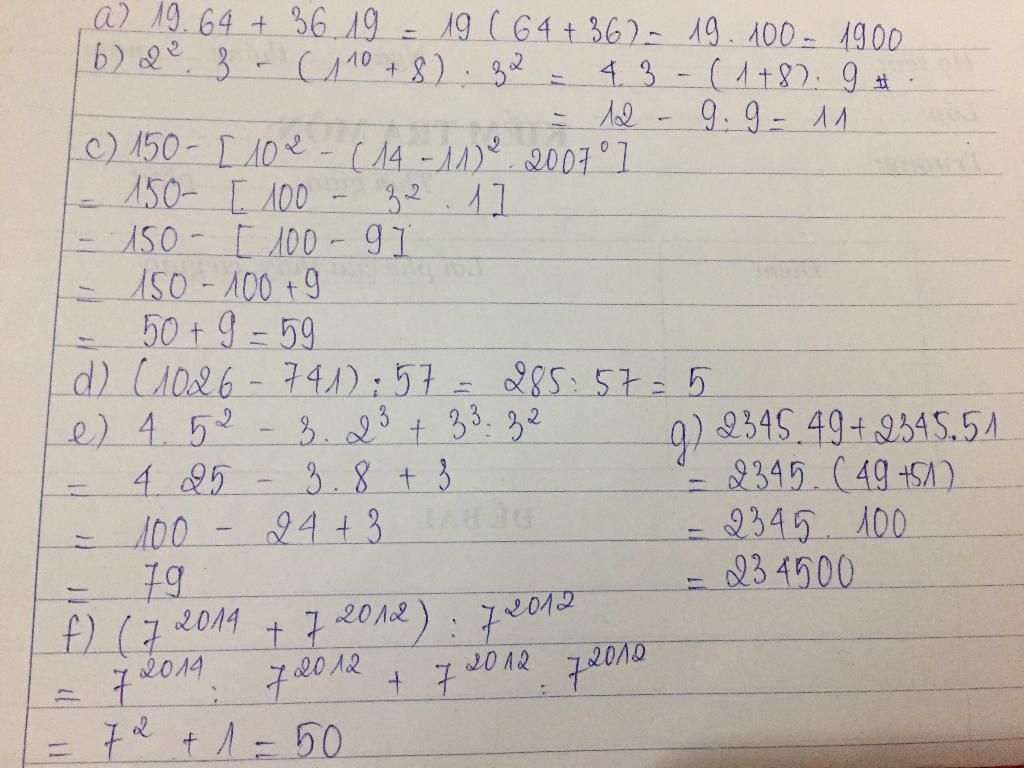 a) 19.64 + 36.19 = 19 (64+36) = 19.100 = 1900
b) 2² . 3 - (1¹⁰ + 8) : 3² = 4.3 - (1+8) : 9
= 12 - 9:9 = 11
c) 150 - [10² - (14 - 11)² . 2007⁰]
= 150 - [100 - 3² . 1]
= 150 - [100 - 9]
= 150 - 100 + 9
= 50 + 9 = 59
d) (1026 - 741) : 57 = 285 : 57 = 5
e) 4. 5² - 3. 2³ + 3³ : 3²
= 4. 25 - 3. 8 + 3
= 100 - 24 + 3
= 79
g) 2345.49 + 2345.51
= 2345. (49 + 51)
= 2345. 100
= 234500
f) (7²⁰¹⁴ + 7²⁰¹²) : 7²⁰¹²
= 7²⁰¹⁴ : 7²⁰¹² + 7²⁰¹² : 7²⁰¹²
= 7² + 1 = 50
KIỂM TRA MÔN:
Điểm
ĐỀ BÀI